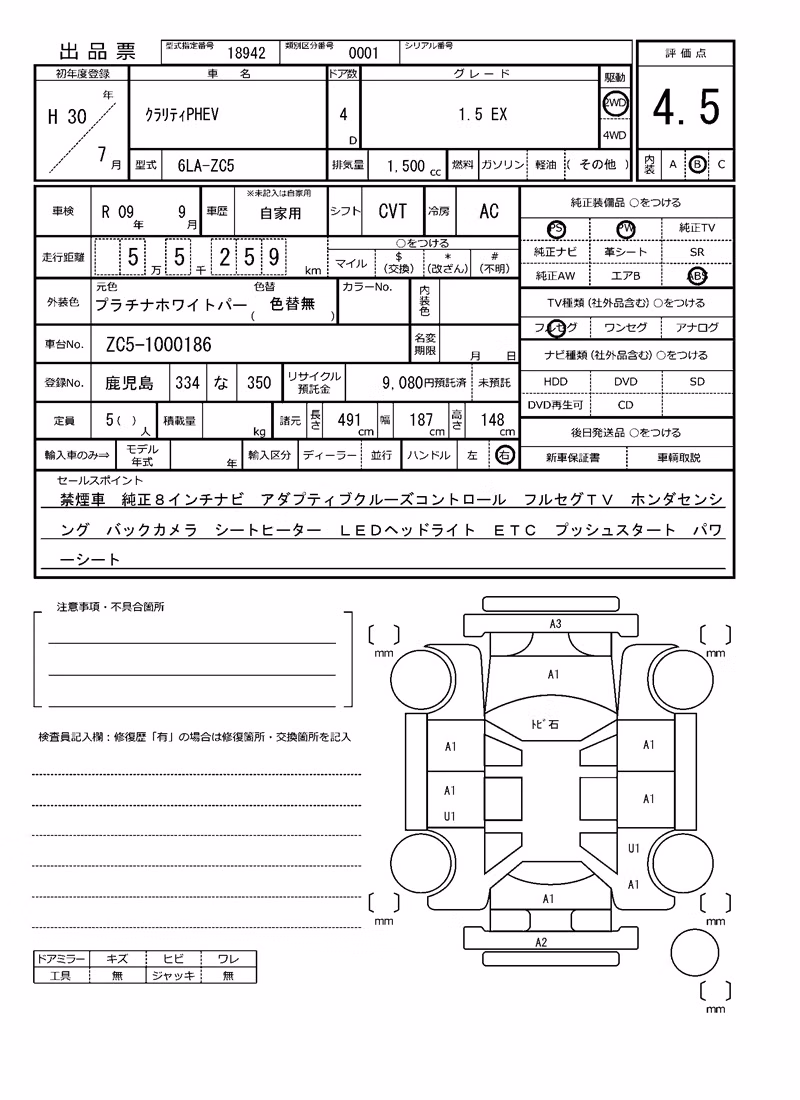 出品票 型式指定番号 18942 類別区分番号 0001 シリアル番号
評価点
4.5
内装 A B C
初年度登録 車名 ドア数 グレード 駆動
H 30 年 7 月
クラリティPHEV 4 D 1.5 EX 2WD
4WD
型式 6LA-ZC5 排気量 1,500 cc 燃料 ガソリン 軽油 ( その他 )
車検 R 09 年 9 月 車歴 ※未記入は自家用 自家用 シフト CVT 冷房 AC
走行距離 5 万 5 千 2 5 9 km ○をつける
マイル $ (交換) * (改ざん) # (不明)
外装色 元色 プラチナホワイトパー 色替 ( 色替無 ) カラーNo. 内装色
車台No. ZC5-1000186 名変期限 月 日
登録No. 鹿児島 334 な 350 リサイクル預託金 9,080円預託済 未預託
定員 5 ( ) 人 積載量 kg 諸元 長さ 491 cm 幅 187 cm 高さ 148 cm
輸入車のみ⇒ モデル年式 年 輸入区分 ディーラー 並行 ハンドル 左 右
純正装備品 ○をつける
PS PW 純正TV
純正ナビ 革シート SR
純正AW エアB ABS
TV種類(社外品含む) ○をつける
フルセグ ワンセグ アナログ
ナビ種類(社外品含む) ○をつける
HDD DVD SD
DVD再生可 CD
後日発送品 ○をつける
新車保証書 車輌取説
セールスポイント
禁煙車 純正8インチナビ アダプティブクルーズコントロール フルセグTV ホンダセンシ
ング バックカメラ シートヒーター LEDヘッドライト ETC プッシュスタート パワ
ーシート
注意事項・不具合箇所
検査員記入欄：修復歴「有」の場合は修復箇所・交換箇所を記入
ドアミラー キズ ヒビ ワレ
工具 無 ジャッキ 無
A3
mm mm
A1
トビ石
A1 A1
A1 A1
U1
U1
A1
A1
mm mm
A2
mm